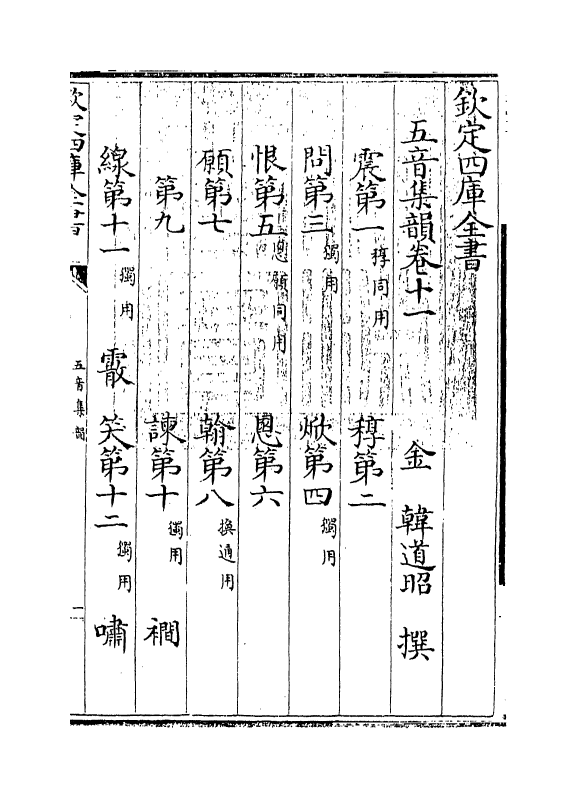 欽定四庫全書
五音集韻卷十一
金 韓道昭 撰
震第一 稕同用 稕第二
問第三 獨用 焮第四 獨用
恨第五 慁願同用 慁第六
願第七 翰第八 換通用
第九 諫第十 獨用 襉
線第十一 獨用 霰 笑第十二 獨用 嘯
欽定四庫全書
五音集韻
一